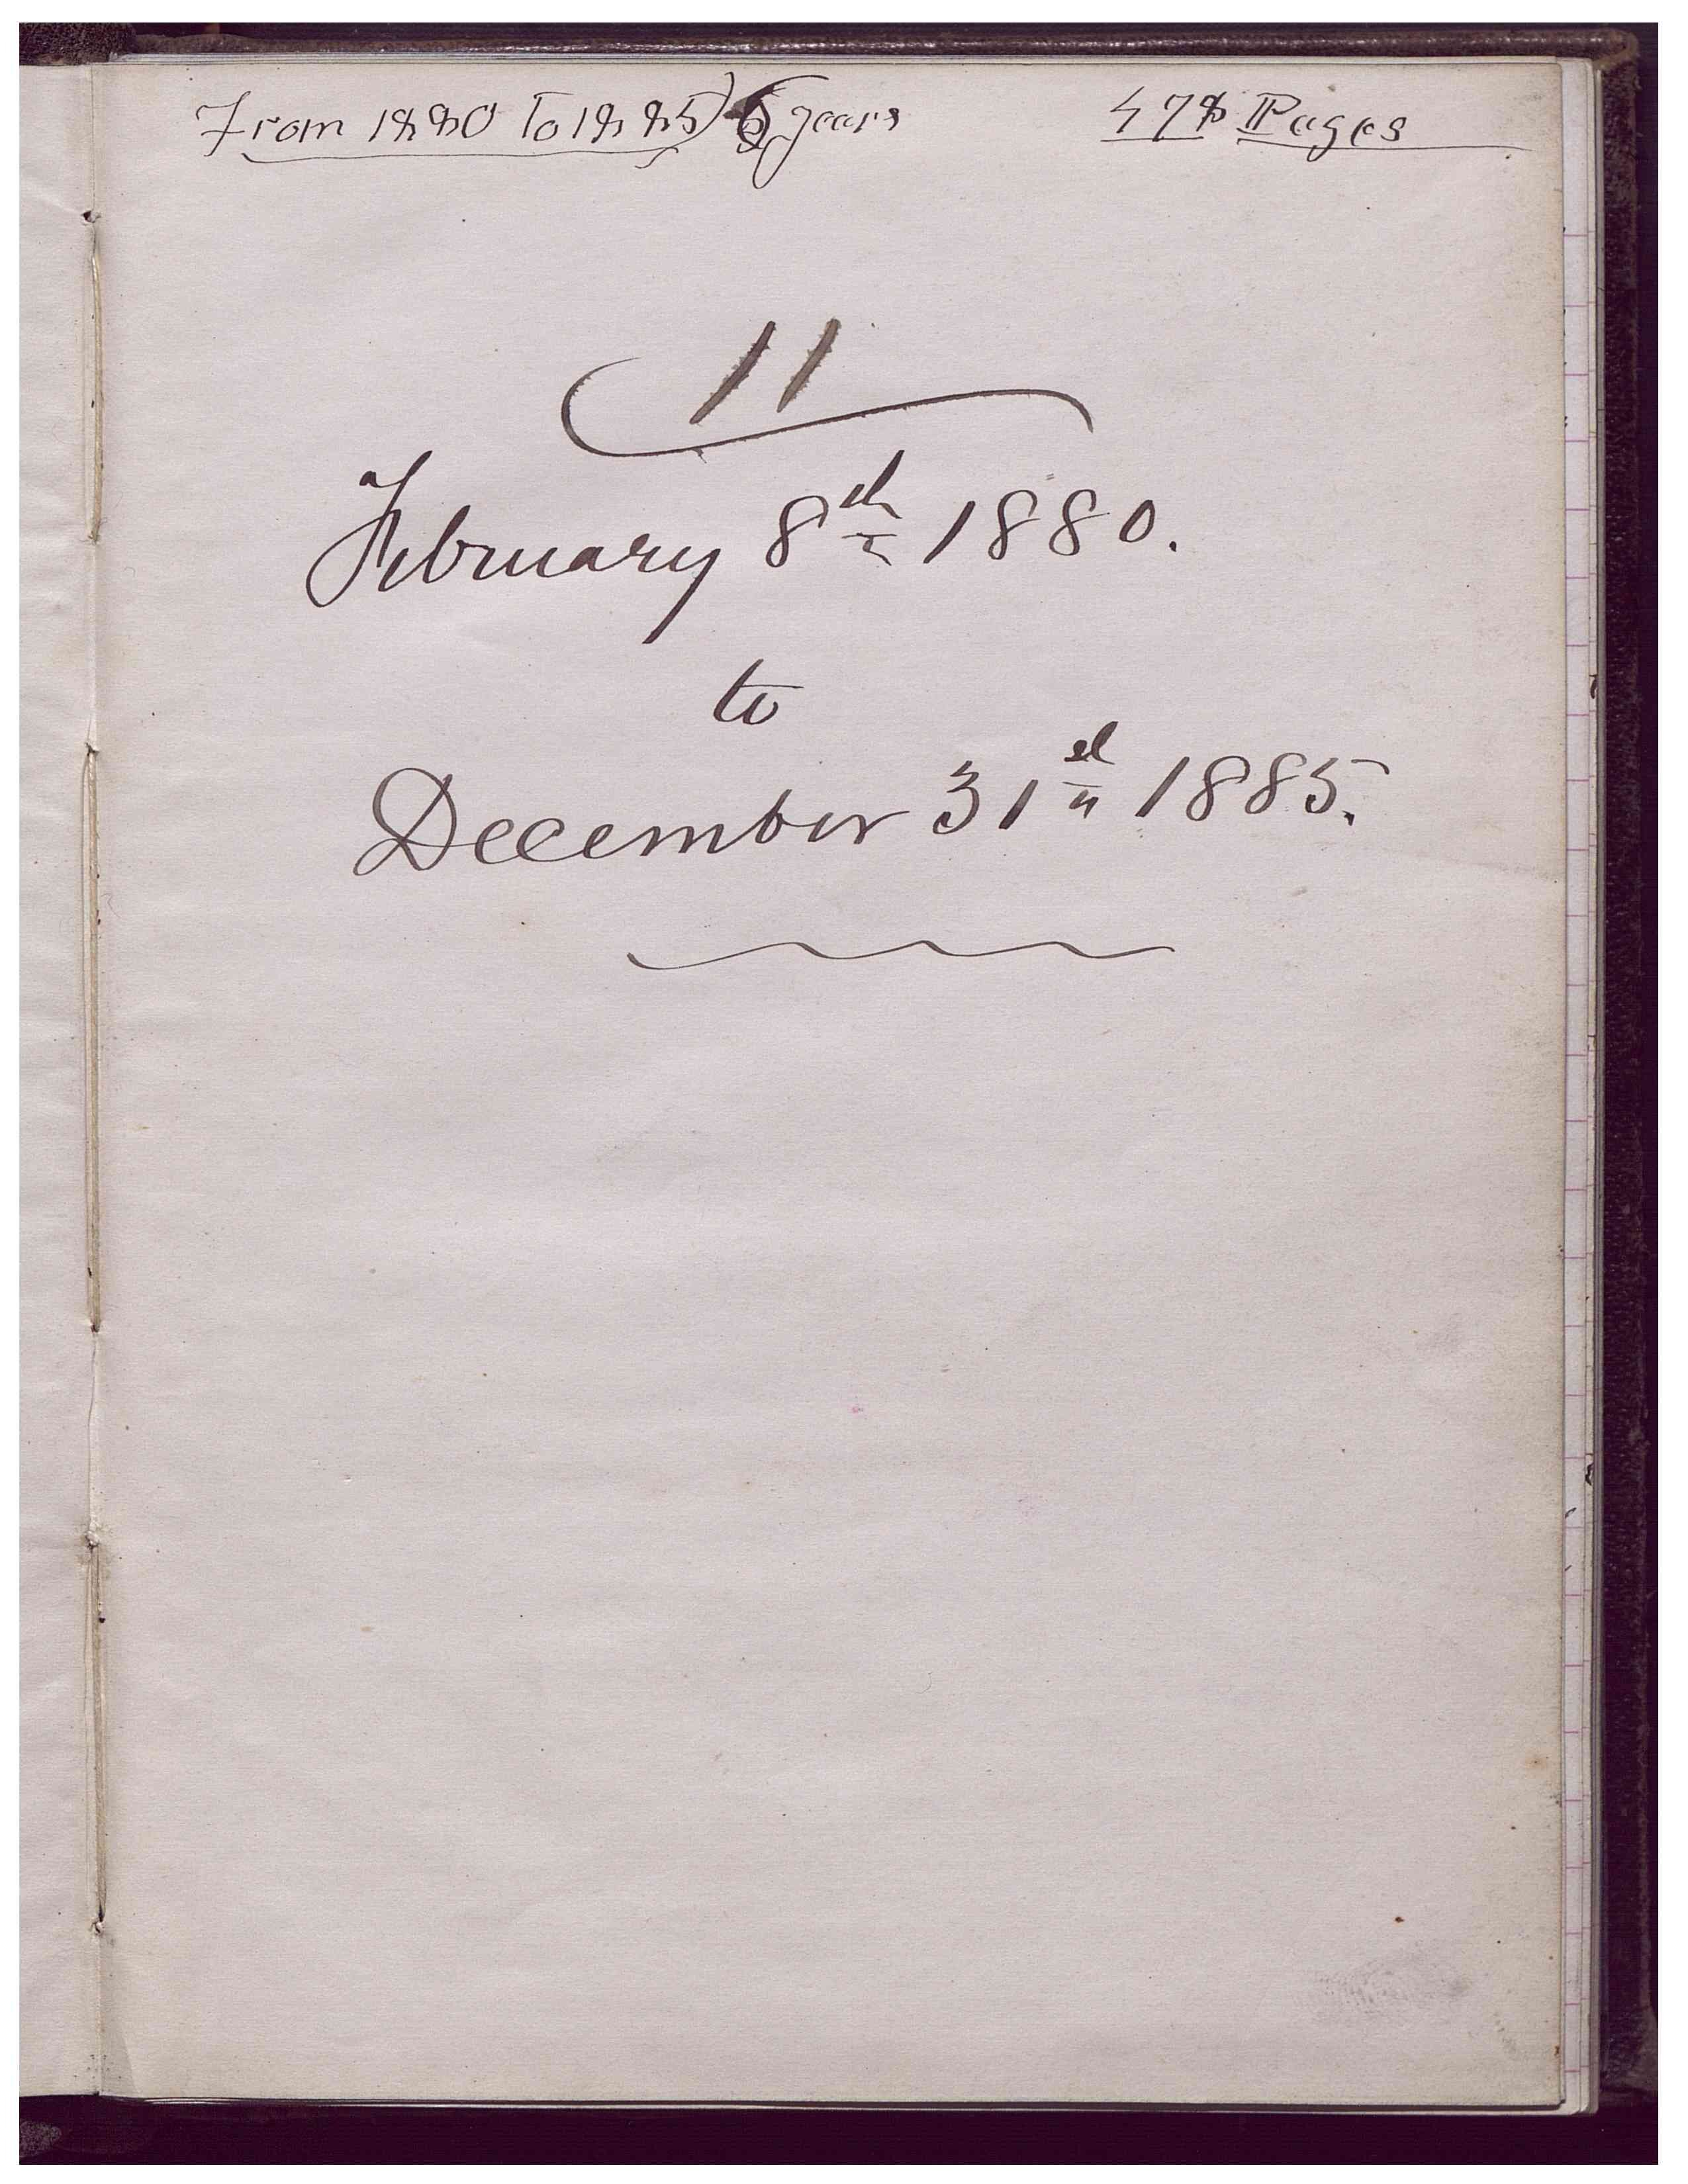 From 1880 To 1885) 6 years 478 Pages
11
February 8th 1880.
to
December 31st 1885.